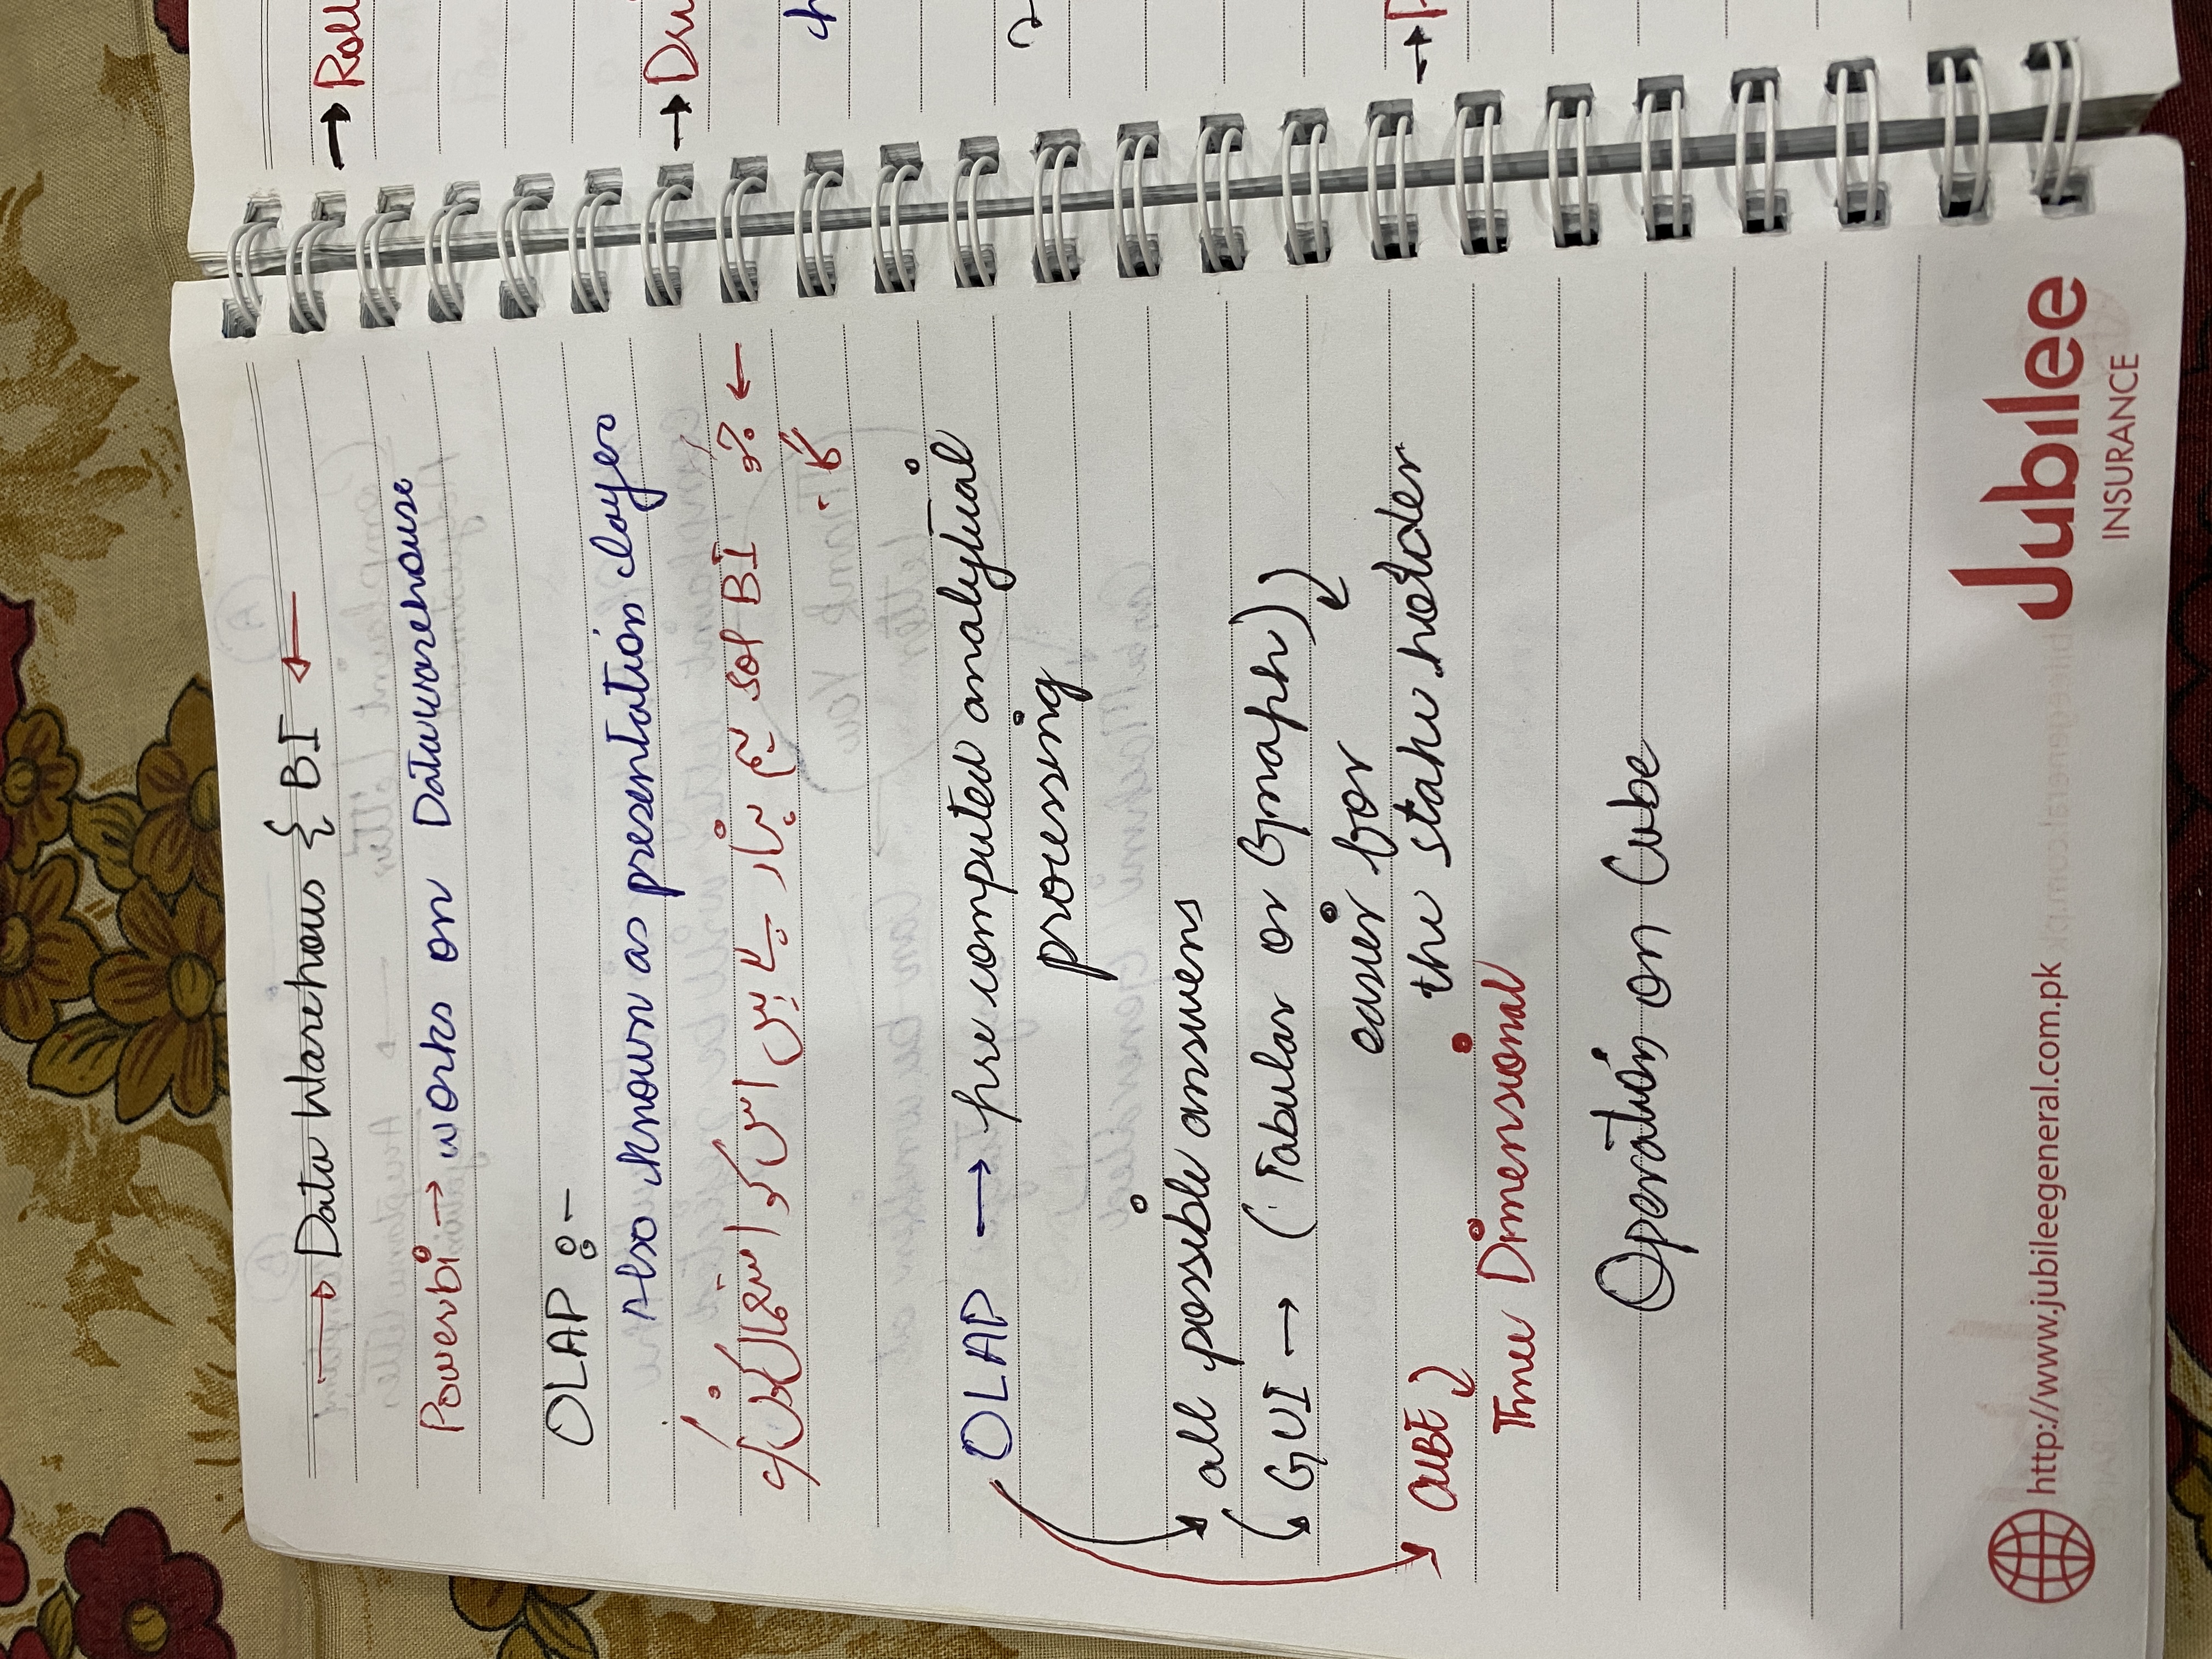 Data Warehous & BI
Powerbi → works on Datawarehouse
OLAP :-
Also known as presentation layer
← جو BI sol ہم بنار ہے ہیں اس کو استعمال کون کرے
گا۔
OLAP → pre computed analytical
processing
all possible answers
GUI → (Tabular or Graph)
easier for
the stake holder
CUBE
Three Dimensional
Operation on Cube
http://www.jubileegeneral.com.pk
Jubilee
INSURANCE
→ Roll